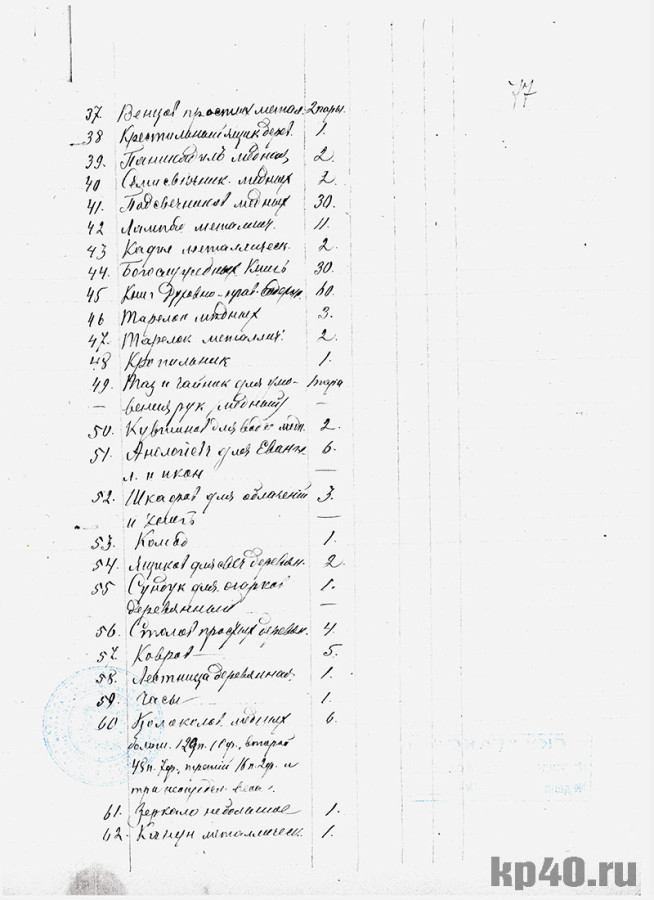 77
37. Венцов простых метал. 2 пары.
38 Крестильный ящик дерев. 1.
39. Паникадилъ медных 2.
40 Семисвечник. медных 2.
41. Подсвечников медных 30.
42 Лампад металич. 11.
43 Кадил металлическ. 2.
44. Богослужебных Книгъ 30.
45 Книг Духовно-нрав. 60.
46 Тарелок медных 3.
47. Тарелок металлич. 2.
48 Кропильник 1.
49. Таз и чайник для умо- 1 пара
— вения рук (медный) —
50. Кувшинов для воды 2.
51. Аналоев для Еванг. 6.
л. и икон —
52. Шкафов для облачений 3.
и книгъ —
53. Комод 1.
54. Ящиков для свеч деревян. 2.
55 Сундук для огарков 1.
деревянный —
56. Столов простых деревян. 4.
57. Ковров — 5.
58. Лестница деревянная. 1.
59. Часы — 1.
60 Колоколов медных 6.
больш. 129п. 10ф., второй
43п. 7ф., третий 16п. 2ф. и
три неопредел. веса.
61. Зеркало небольшое 1.
62. Канун металлическ. 1.
kp40.ru